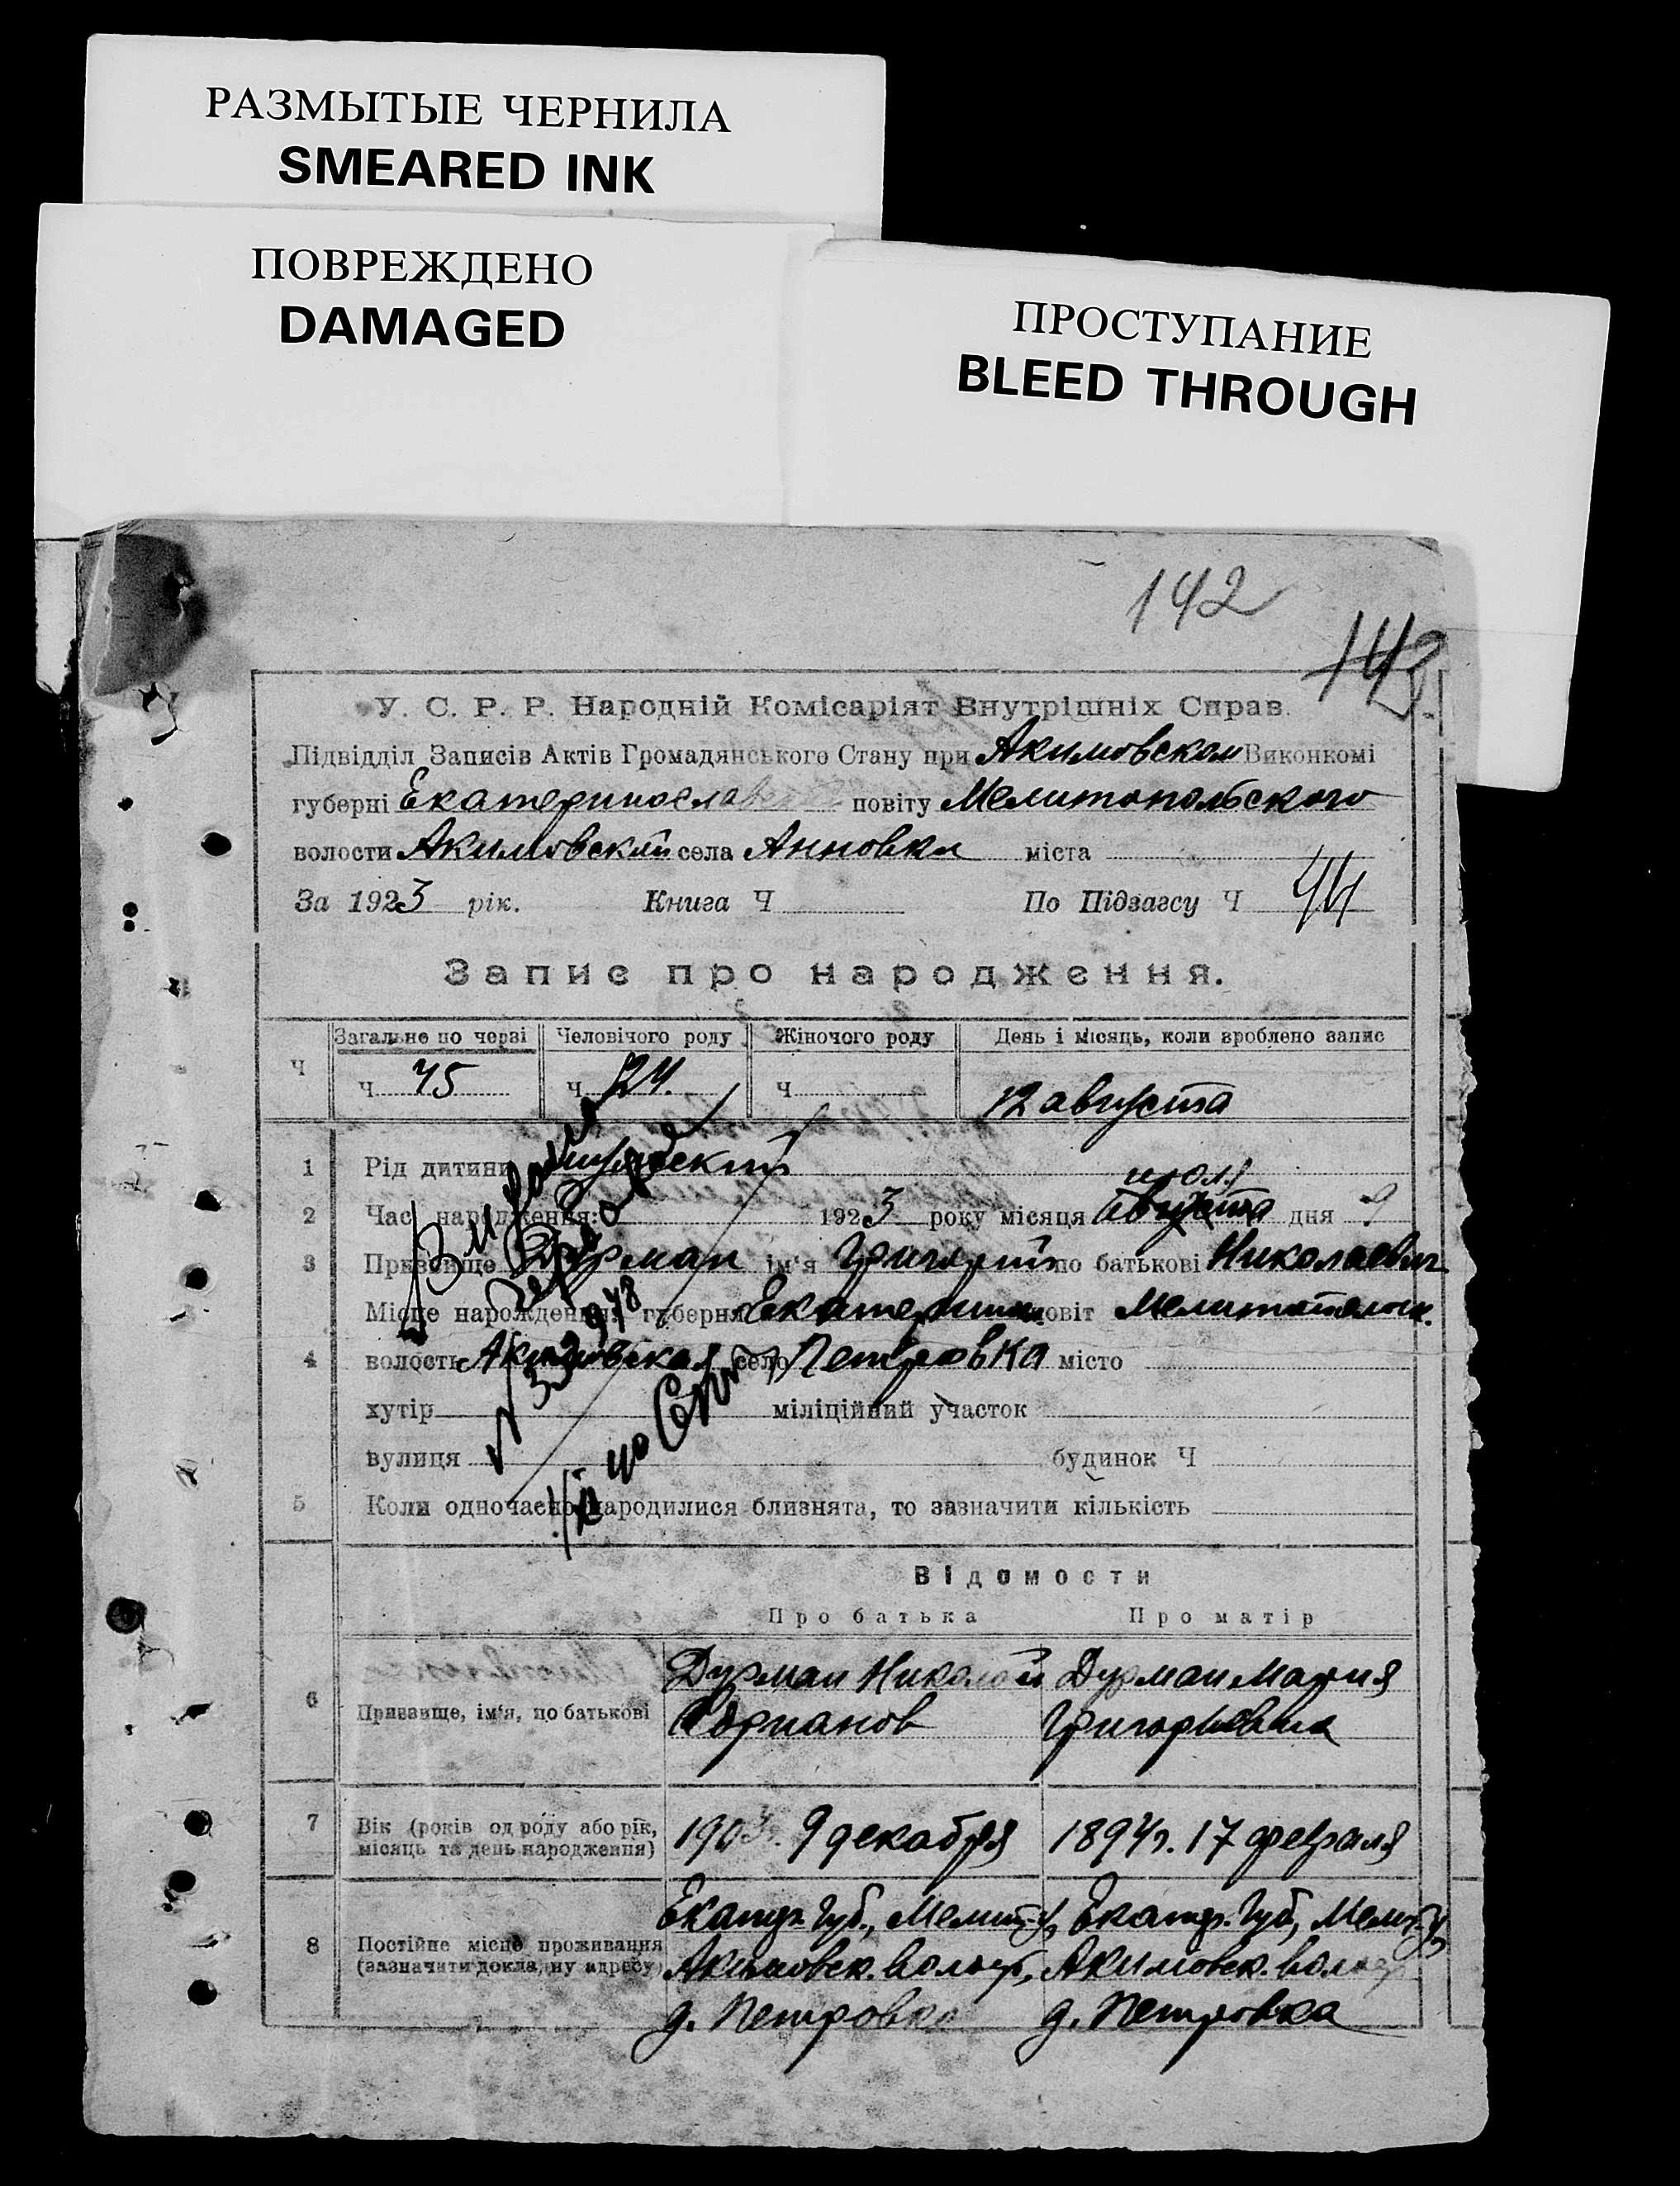 РАЗМЫТЫЕ ЧЕРНИЛА
SMEARED INK
ПОВРЕЖДЕНО
DAMAGED
ПРОСТУПАНИЕ
BLEED THROUGH
142
143
У. С. Р. Р. Народній Комісаріят Внутрішніх Справ.
Підвідділ Записів Актів Громадянського Стану при Акимовском Виконкомі
губерні Екатеринослав повіту Мелитопольского
волости Акимовский села Анновка міста
За 1923 рік. Книга Ч По Підзагсу Ч 44
Запис про народження.
Ч Загальне по черзі Человічого роду Жіночого роду День і місяць, коли вроблено запис
Ч 45 Ч 24. Ч 12 августа
1 Рід дитини мужеский
июля
2 Час народження: 1923 року місяця августа дня 9
3 Призвище Дурман ім'я Григорий по батькові Николаевич
Місце народження: губерня Екатерин повіт Мелитопольск.
4 волость Акимовская село Петровка місто
хутір міліційний участок
вулиця будинок Ч
5 Коли одночасно народилися близнята, то зазначити кількість
Відомости
Про батька Про матір
6 Призвище, ім'я, по батькові Дурман Николай Дурман Мария
Григорьевна
7 Вік (років од роду або рік, місяць та день народження) 9 декабря 1894 г. 17 февраля
8 Постійне місце проживання (зазначити докладну адресу) Екатер. Губ., Мелит. у, Екатер. Губ, Мелит. у,
Акимовск. волость, Акимовск. волость
д. Петровка д. Петровка